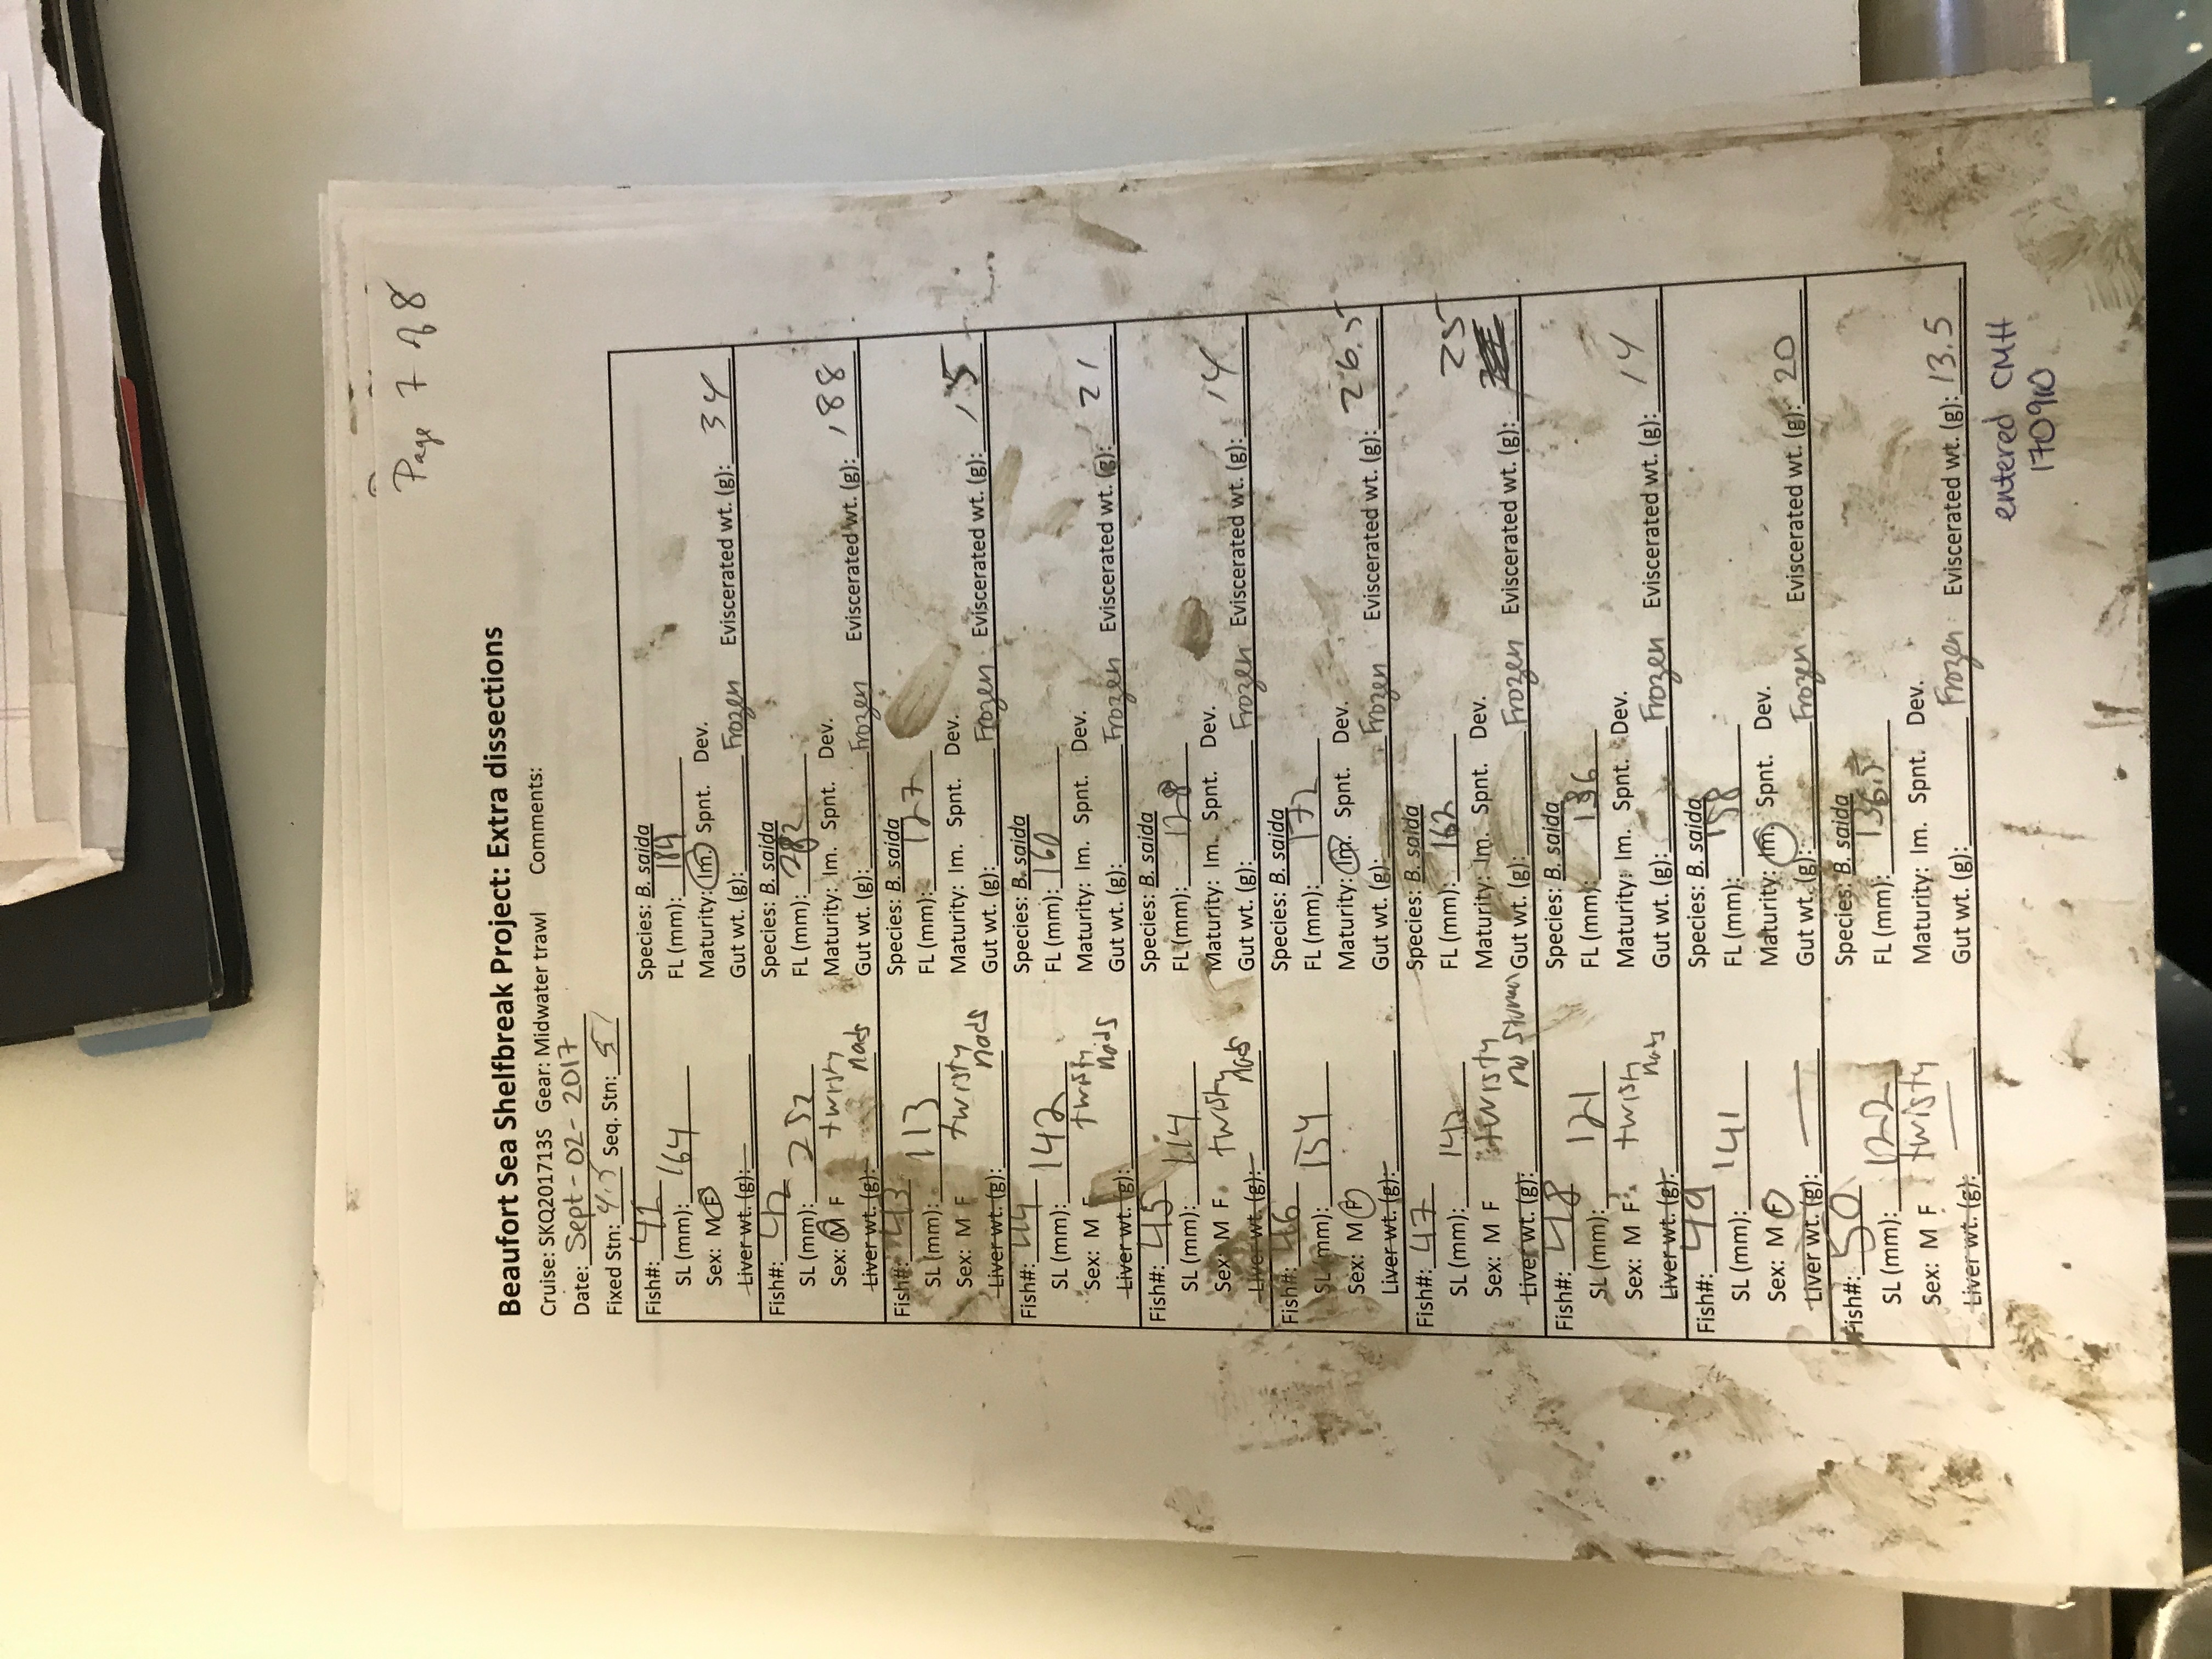 Page 7 of 8
Beaufort Sea Shelfbreak Project: Extra dissections
Cruise: SKQ201713S Gear: Midwater trawl Comments:
Date: Sept-02-2017
Fixed Stn: Seq. Stn:
Fish#: 41 Species: B. saida
SL (mm): 164 FL (mm): 184
Sex: M F Maturity: Im. Spnt. Dev.
Liver wt. (g): Gut wt. (g): Frozen Eviscerated wt. (g): 34
Fish#: 42 Species: B. saida
SL (mm): 252 FL (mm): 282
Sex: M F twisty Maturity: Im. Spnt. Dev.
nads
Liver wt. (g): Gut wt. (g): Frozen Eviscerated wt. (g): 188
Fish#: 43 Species: B. saida
SL (mm): 113 FL (mm): 127
Sex: M F twisty Maturity: Im. Spnt. Dev.
nads
Liver wt. (g): Gut wt. (g): Frozen Eviscerated wt. (g): 15
Fish#: 44 Species: B. saida
SL (mm): 142 FL (mm): 160
Sex: M F twisty Maturity: Im. Spnt. Dev.
nads
Liver wt. (g): Gut wt. (g): Frozen Eviscerated wt. (g): 21
Fish#: 45 Species: B. saida
SL (mm): 114 FL (mm): 128
Sex: M F twisty Maturity: Im. Spnt. Dev.
nads
Liver wt. (g): Gut wt. (g): Frozen Eviscerated wt. (g): 14
Fish#: 46 Species: B. saida
SL (mm): 154 FL (mm): 172
Sex: M F Maturity: Im. Spnt. Dev.
Liver wt. (g): Gut wt. (g): Frozen Eviscerated wt. (g): 26.5
Fish#: 47 Species: B. saida
SL (mm): 142 FL (mm): 162
Sex: M F twisty Maturity: Im. Spnt. Dev. 25
Liver wt. (g): no Gut wt. (g): Frozen Eviscerated wt. (g):
Fish#: 48 Species: B. saida
SL (mm): 121 FL (mm): 136
Sex: M F twisty Maturity: Im. Spnt. Dev.
nads
Liver wt. (g): Gut wt. (g): Frozen Eviscerated wt. (g): 14
Fish#: 49 Species: B. saida
SL (mm): 141 FL (mm): 158
Sex: M F Maturity: Im. Spnt. Dev.
Liver wt. (g): Gut wt. (g): Frozen Eviscerated wt. (g): 20
Fish#: 50 Species: B. saida
SL (mm): 122 FL (mm): 136.5
Sex: M F twisty Maturity: Im. Spnt. Dev.
Liver wt. (g): Gut wt. (g): Frozen Eviscerated wt. (g): 13.5
entered CMH
170910